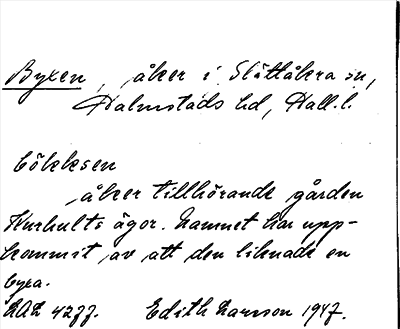 Byxen, åker i Slättåkra sn,
Halmstads hd, Hall. l.
bökksen
, åker tillhörande gården
Kurhults ägor. Namnet har upp-
kommit av att den liknade en
byxa.
LAL 4277. Edith Larsson 1947.